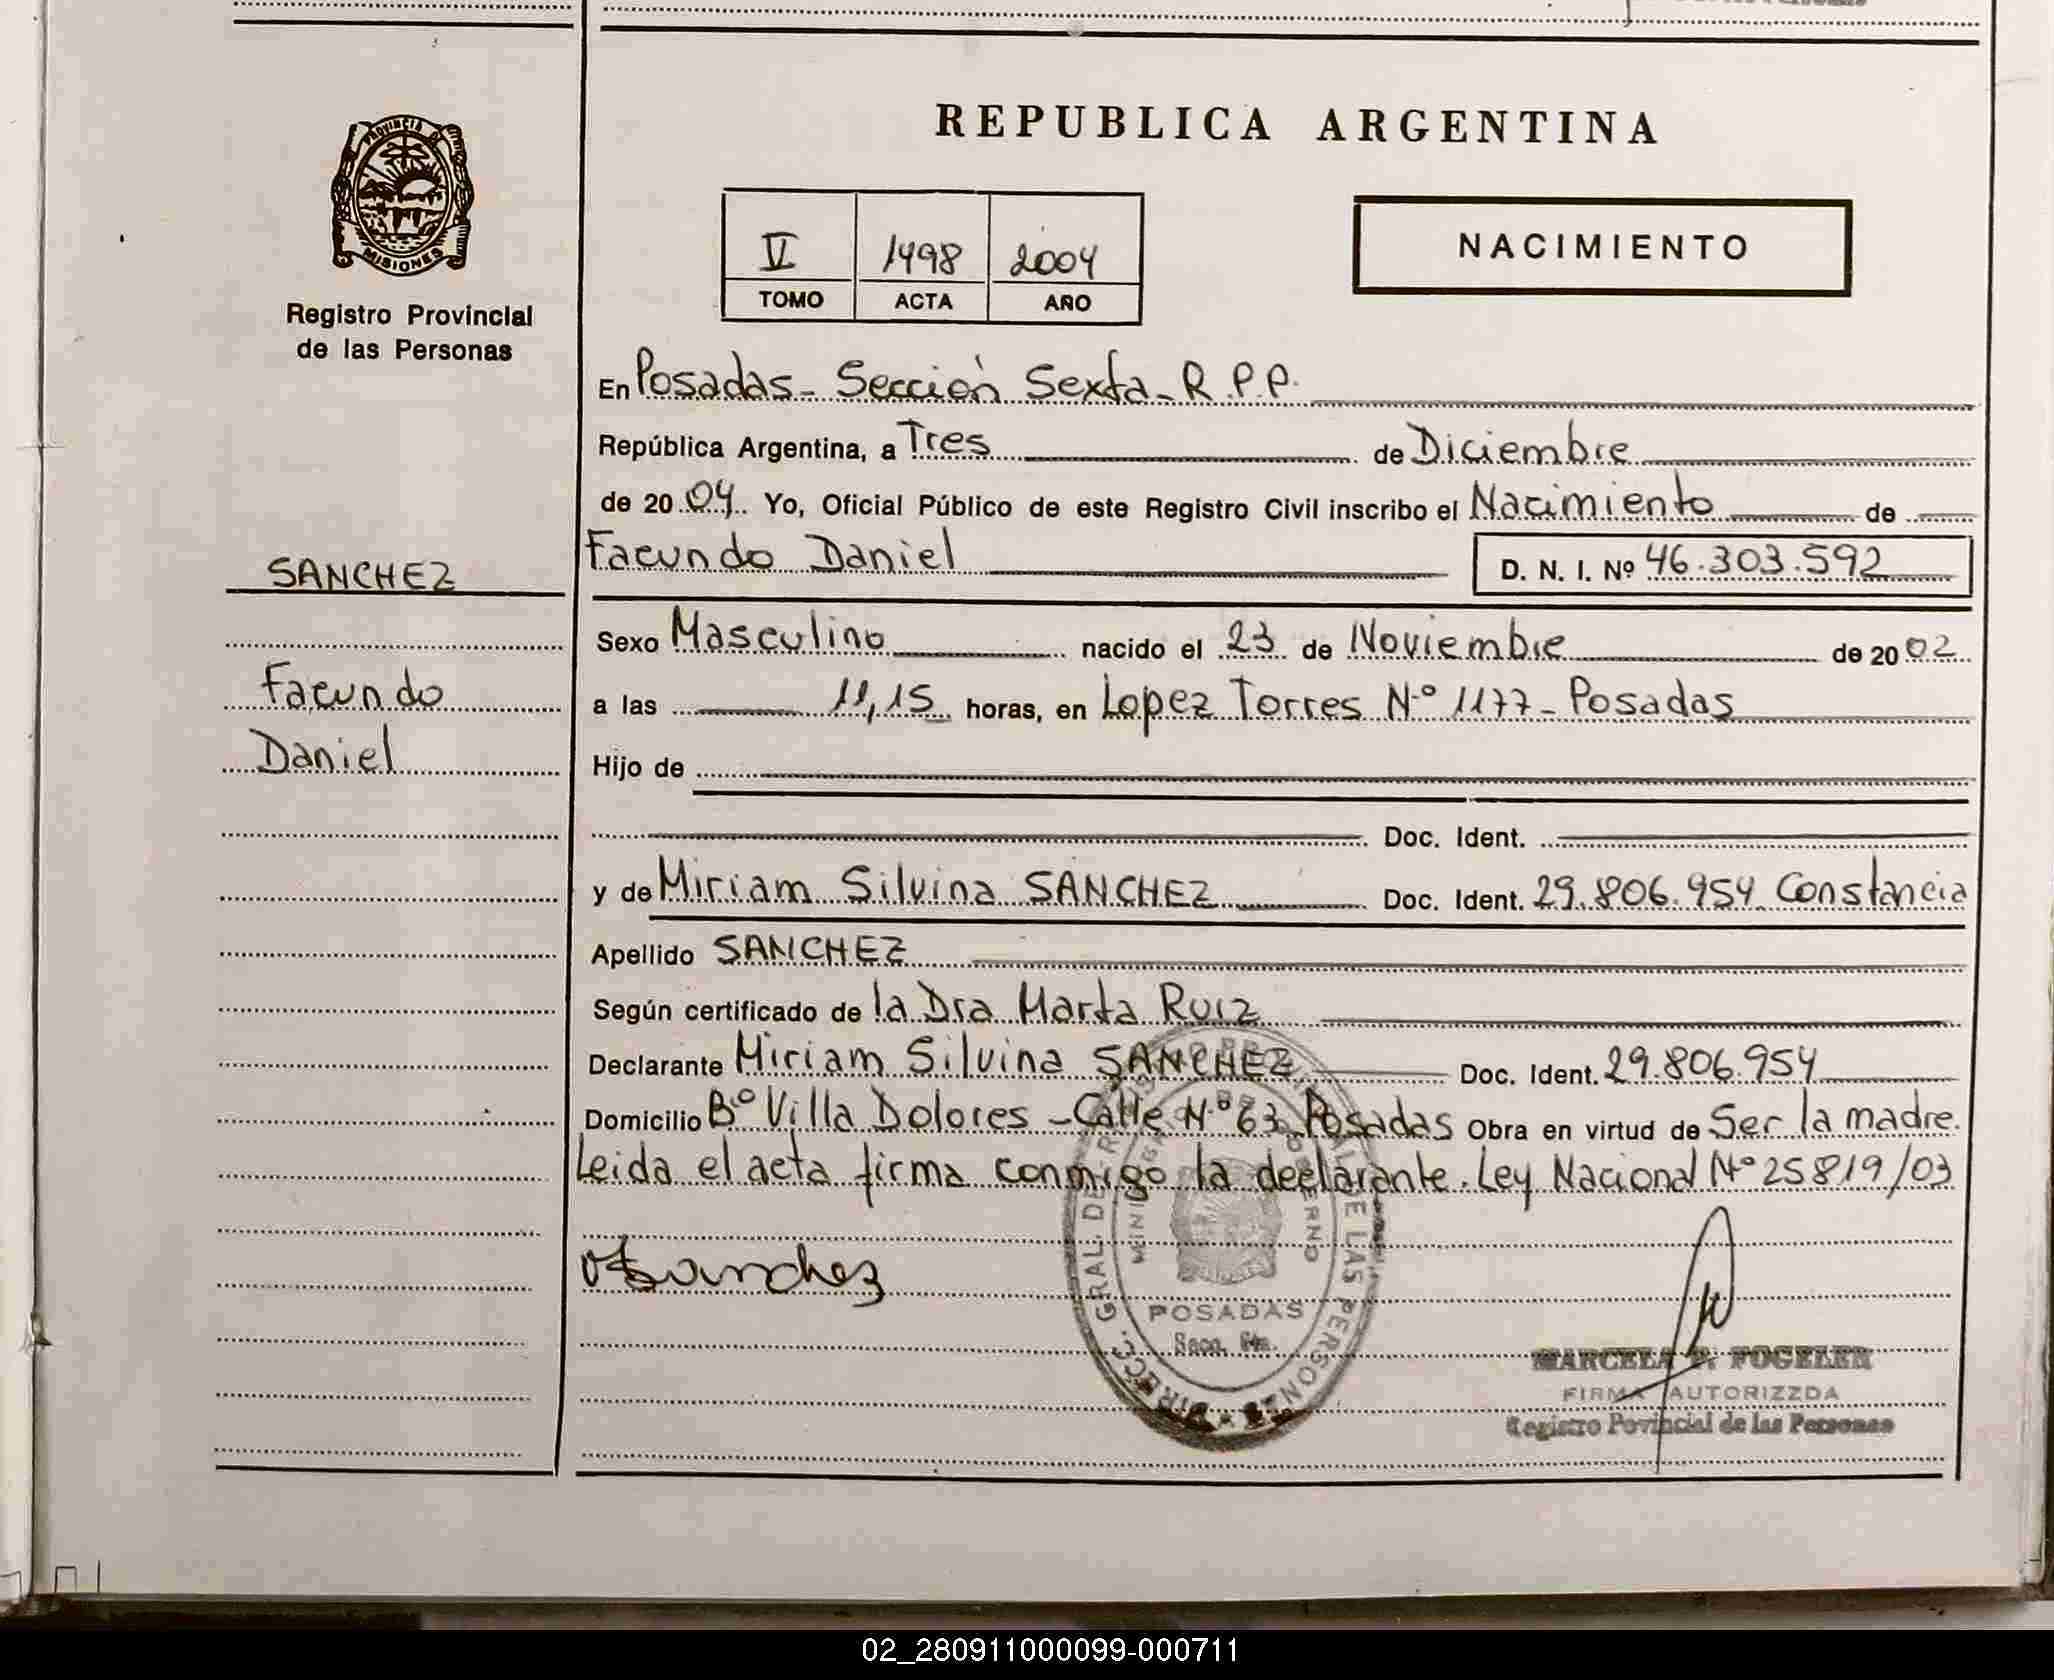 REPUBLICA ARGENTINA
PROVINCIA DE
MISIONES
Registro Provincial
de las Personas
V 1498 2004
TOMO ACTA AÑO
NACIMIENTO
En Posadas - Sección Sexta - R.P.P.
República Argentina, a Tres de Diciembre
de 2004. Yo, Oficial Público de este Registro Civil inscribo el Nacimiento de
SANCHEZ
Facundo Daniel
D. N. I. Nº 46.303.592
Sexo Masculino nacido el 23 de Noviembre de 2002
Facundo
a las 11,15 horas, en Lopez Torres N.º 1177 - Posadas
Daniel
Hijo de
Doc. Ident.
y de Miriam Silvina SANCHEZ Doc. Ident. 29.806.954 Constancia
Apellido SANCHEZ
Según certificado de la Dra Marta Ruiz
Declarante Miriam Silvina SANCHEZ Doc. Ident. 29.806.954
Domicilio Bº Villa Dolores - Calle N.º 63 Posadas Obra en virtud de Ser la madre.
Leida el acta firma conmigo la declarante. Ley Nacional Nº 25819/03
Sanchez
POSADAS
Secc. 6ta.
MARCELA FOGELER
FIRMA AUTORIZZDA
Registro Povincial de las Personas
02_280911000099-000711